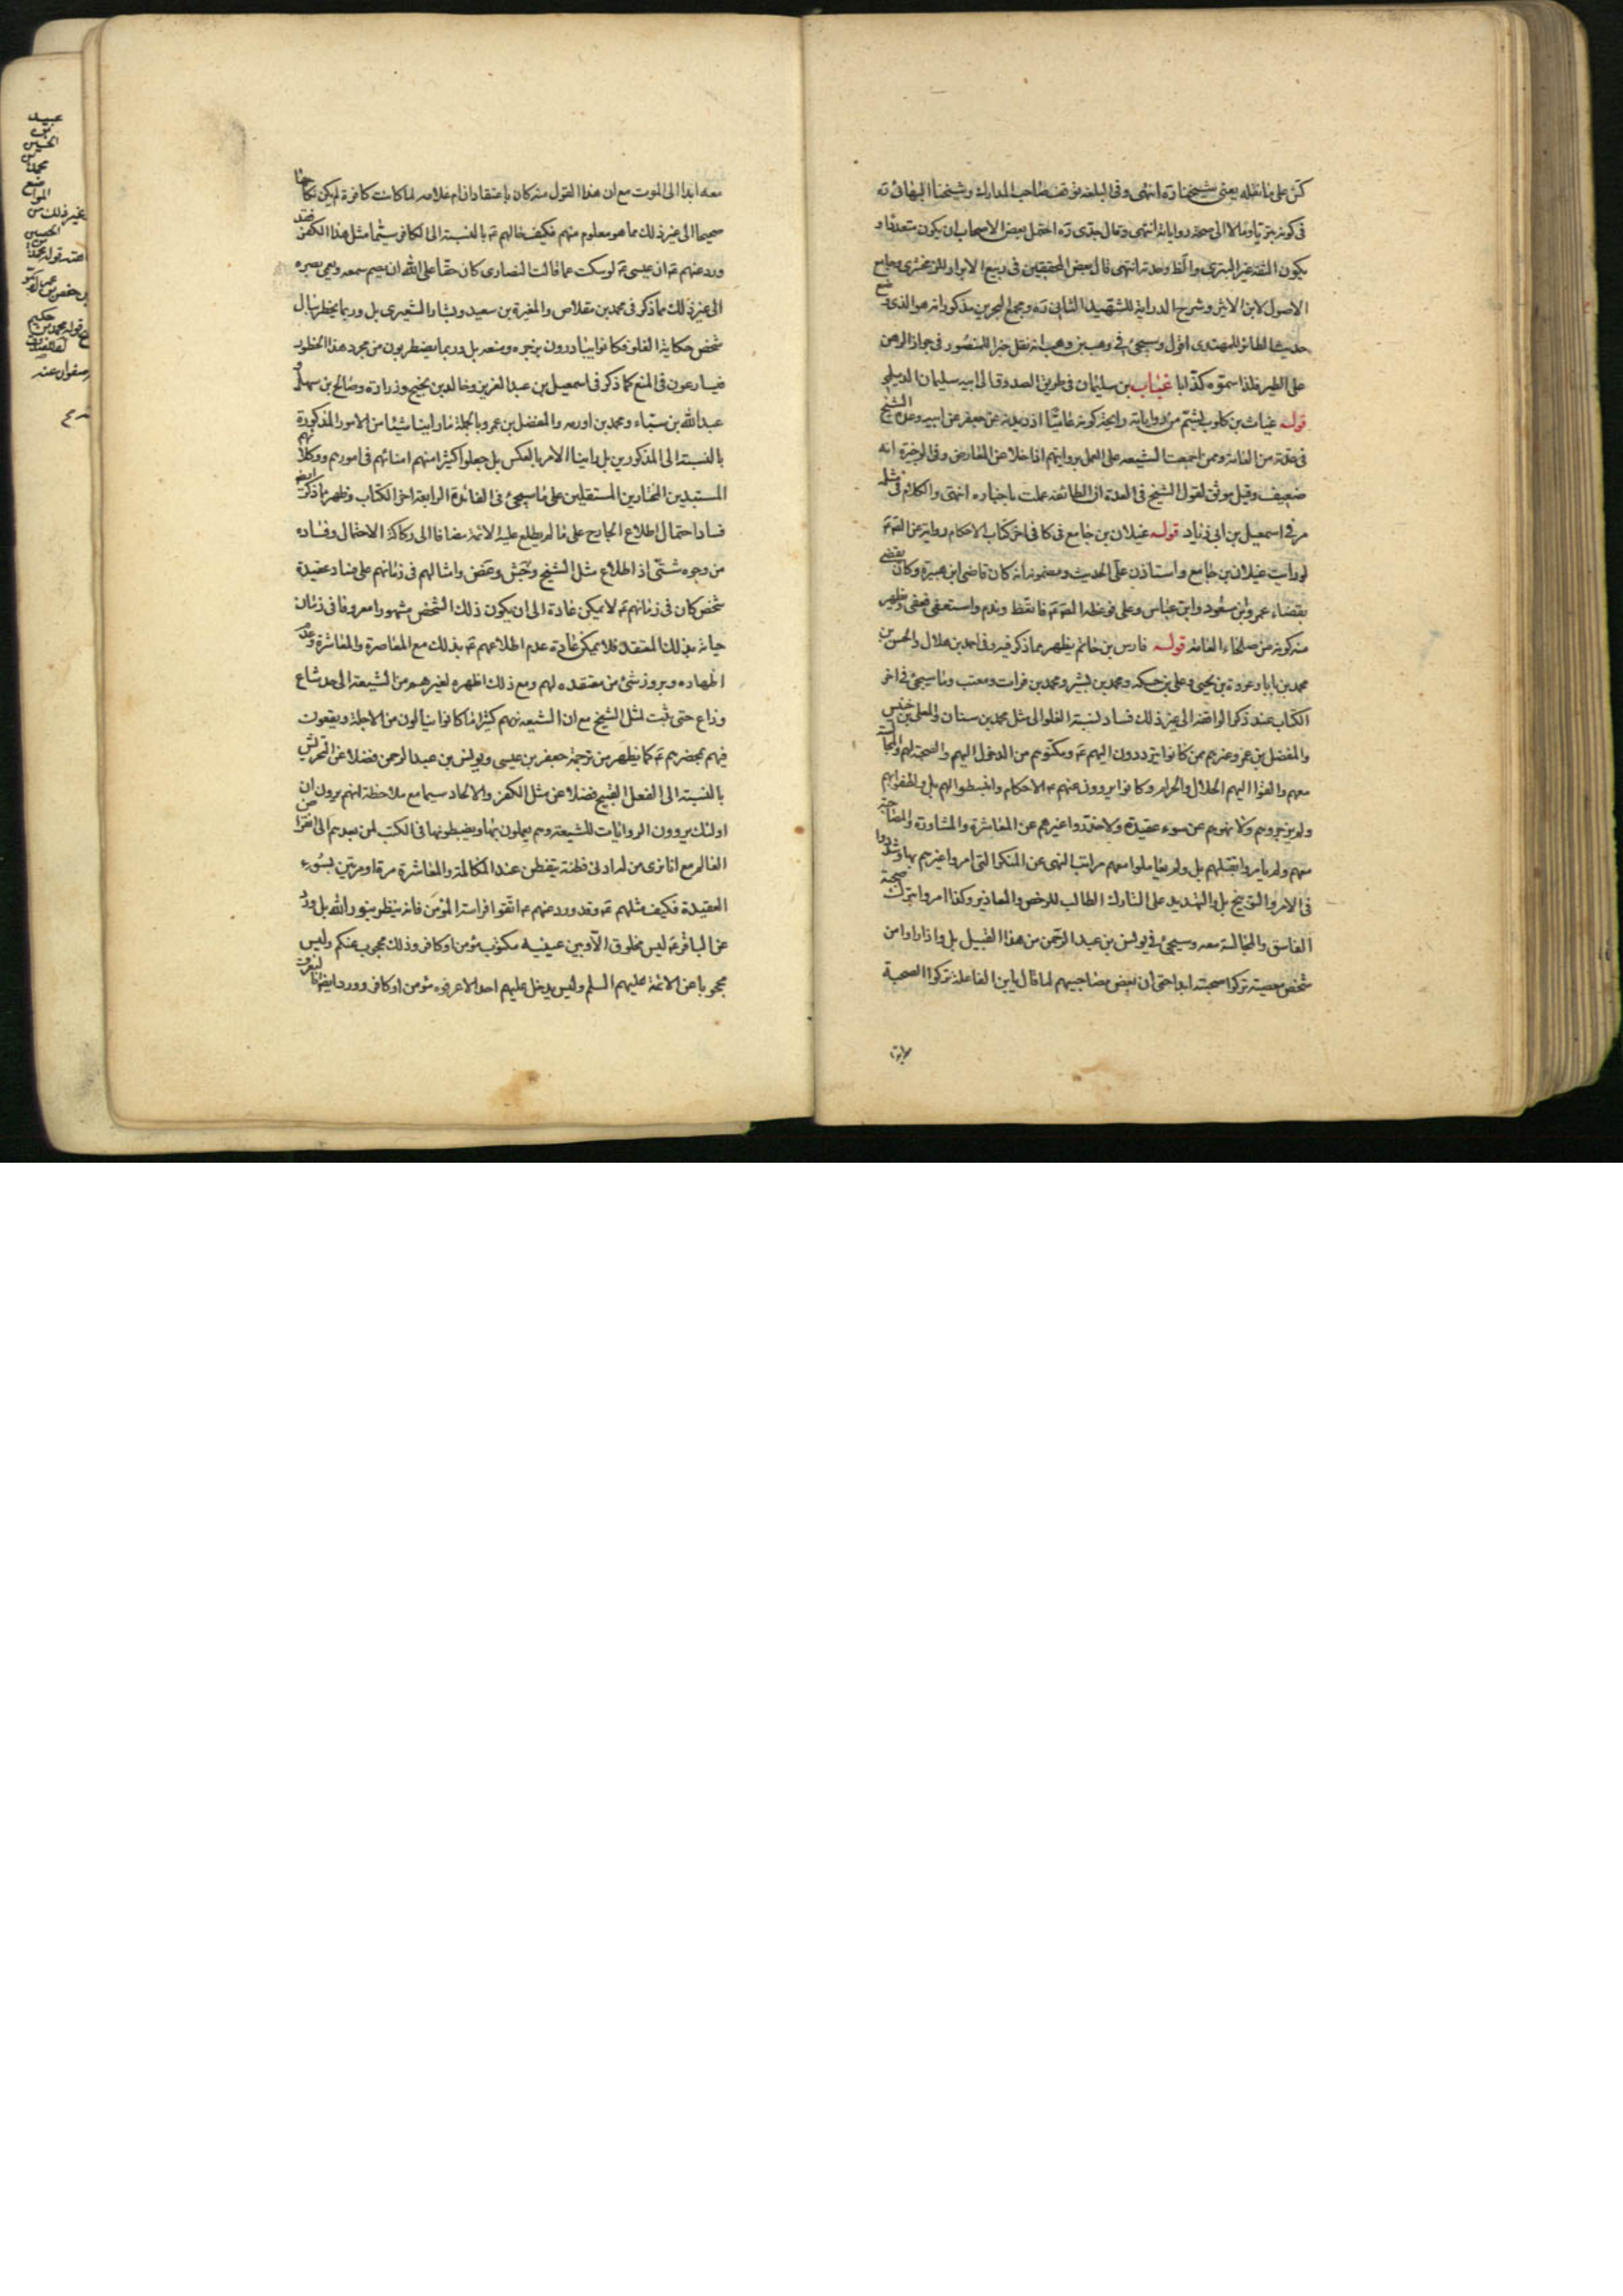 كش على ما نقله يعنى شيخنا ره انتهى وفى البلغة توقف صاحب المدارك وشيخنا البهائى ره
فى كونه بتريا ومالا الى صحة رواياته انتهى وقال جدى ره احتمل بعض الاصحاب ان يكون متعددا و
يكون الثقة غير البترى والظ وحدته انتهى قال بعض المحققين فى ربيع الابرار للزمخشرى وجامع
الاصول لابن الاثير وشرح الدراية للشهيد الثانى ره ومجمع البحرين مذكور انه هو الذى وضع
حديث الطائر للمهدى اقول وسيجئ فى وهب بن وهب انه نقل خبرا للمنصور فى جواز الرهن
على الطير فلذا سموه كذابا غياث بن سليمان فى طريق الصدوق الى ابيه سليمان الديلمى
قوله غياث بن كلوب يشم من رواياته رايحة كونه عاميا اذ ديدنه عن جعفر عن ابيه وعده الشيخ
فى عدته من العامة وممن اجمعت الشيعة على العمل بروايتهم اذا خلا عن المعارض وفى الوجيزة انه
ضعيف وقيل موثق لقول الشيخ فى العدة ان الطائفة عملت باخباره انتهى والكلام فى مثله
مر فى اسمعيل بن ابى زياد قوله غيلان بن جامع فى كا فى اخر كتاب الاحكام رواية عن الصم
لو رأيت غيلان بن جامع واستاذن على الحديث ومضمونه انه كان قاضى ابن هبيرة وكان يقضى
بقضاء عمر وابن مسعود وابن عباس وعلى فوعظه الصم فاتعظ وندم واستعفى فعفى وظهر
منه كونه من صلحاء العامة قوله فارس بن حاتم يظهر مما ذكر فيه وفى احمد بن هلال والحسن بن
محمد بن بابا وعروة بن يحيى وعلى بن حسكه ومحمد بن بشير ومحمد بن فرات ومعتب وما سيجئ فى اخر
الكتاب عند ذكر الواقفة الى غير ذلك فساد نسبة الغلو الى مثل محمد بن سنان والمعلى بن خنيس
والمفضل بن عمر وغيرهم ممن كانوا يترددون اليهم ع ومكنوهم من الدخول اليهم والصحبة لهم والمجالسة
معهم والقوا اليهم الحلال والحرام وكانوا يروون عنهم ع الاحكام وانبسطوا لهم بل ولطفوا بهم
ولم يزجروهم ولا نهوهم عن سوء عقيدة ولا حذروا غيرهم عن المعاشرة والمشاورة والمصاحبة
معهم ولم يامروا بقتلهم بل ولم يعاملوا معهم مراتب النهى عن المنكر التى امروا غيرهم بها وشددوا
فى الامر والتوبيخ بل والتهديد على التارك الطالب للرخص والمعاذير وكذا امروا بترك صحبة
الفاسق والمجالسة معه وسيجئ فى يونس بن عبد الرحمن من هذا القبيل بل واذا راوا من
شخص معصية تركوا صحبته ابدا حتى ان بعض مصاحبيهم لما قال يا بن الفاعلة تركوا الصحبة
معه ابدا الى الموت مع ان هذا القول منه كان باعتقاد ان ام غلامه لما كانت كافرة لم يكن نكاحها
صحيحا الى غير ذلك مما هو معلوم منهم فكيف حالهم ع بالنسبة الى الكافر سيما مثل هذا الكفر فقد
ورد عنهم ع ان عيسى ع لو سكت عما قالت النصارى كان حقا على الله ان يصم سمعه ويعمى بصره
الى غير ذلك مما ذكر فى محمد بن مقلاص والمغيرة بن سعيد وبشار الشعيرى بل وربما يخطر ببال
شخص حكاية الغلو فكانوا يبادرون بزجره ومنعه بل وربما يضطربون من مجرد هذا الخطور
فيسارعون فى المنع كما ذكر فى اسمعيل بن عبد العزيز وخالد بن نجيح وزرارة وصالح بن سهل و
عبد الله بن سباء ومحمد بن اورمه والمفضل بن عمر وبالجملة ما راينا شيئا من الامور المذكورة
بالنسبة الى المذكورين بل راينا الامر بالعكس بل جعلوا كثيرا منهم امنائهم فى امورهم ووكلائهم
المستبدين المختارين المستقلين على ما سيجئ فى الفائدة الرابعة اخر الكتاب وظهر مما ذكرت ايضا
فساد احتمال اطلاع الجارح على ما لم يطلع عليه الائمة مضافا الى ركاكة الاحتمال وفساده
من وجوه شتى اذ اطلاع مثل الشيخ وجش وغض وامثالهم فى زمانهم على فساد عقيدة
شخص كان فى زمانهم ع لا يمكن عادة الى ان يكون ذلك الشخص مشهورا معروفا فى زمان
حياته بذلك المعتقد فلا يمكن عادة عدم اطلاعهم ع بذلك مع المعاصرة والمعاشرة وعدم
اظهاره وبروز شئ من معتقده لهم ومع ذلك اظهره لغيرهم من الشيعة الى حد شاع
وذاع حتى ثبت لمثل الشيخ مع ان الشيعة منهم كثيرا ما كانوا ينالون من الاجلة ويقعون
فيهم بمحضرهم ع كما يظهر من ترجمة جعفر بن عيسى ويونس بن عبد الرحمن فضلا عن التحريش
بالنسبة الى الفعل القبيح فضلا عن مثل الكفر والالحاد سيما مع ملاحظة انهم يرون ان
اولئك يروون الروايات للشيعة وهم يعملون بها ويضبطونها فى الكتب لمن بعدهم الى انقراض
العالم مع انا نرى من له ادنى فطنة يتفطن عند المكالمة والمعاشرة مرة او مرتين بسوء
العقيدة فكيف مثلهم ع وقد ورد عنهم ع اتقوا فراسة المؤمن فانه ينظر بنور الله بل ورد
عن الباقر ع ليس مخلوق الا وبين عينيه مكتوب مؤمن او كافر وذلك محجوب عنكم وليس
محجوبا عن الائمة عليهم السلم وليس يدخل عليهم احد الا عرفوه مؤمن او كافر وورد ايضا انا لنعرف
عبيد
بن
الحسين
محمد
المواضع
بغير ذلك من
الحسين
عنه قوله محمد
بن حفص
حكيم
قوله محمد بن
صفوان عنه